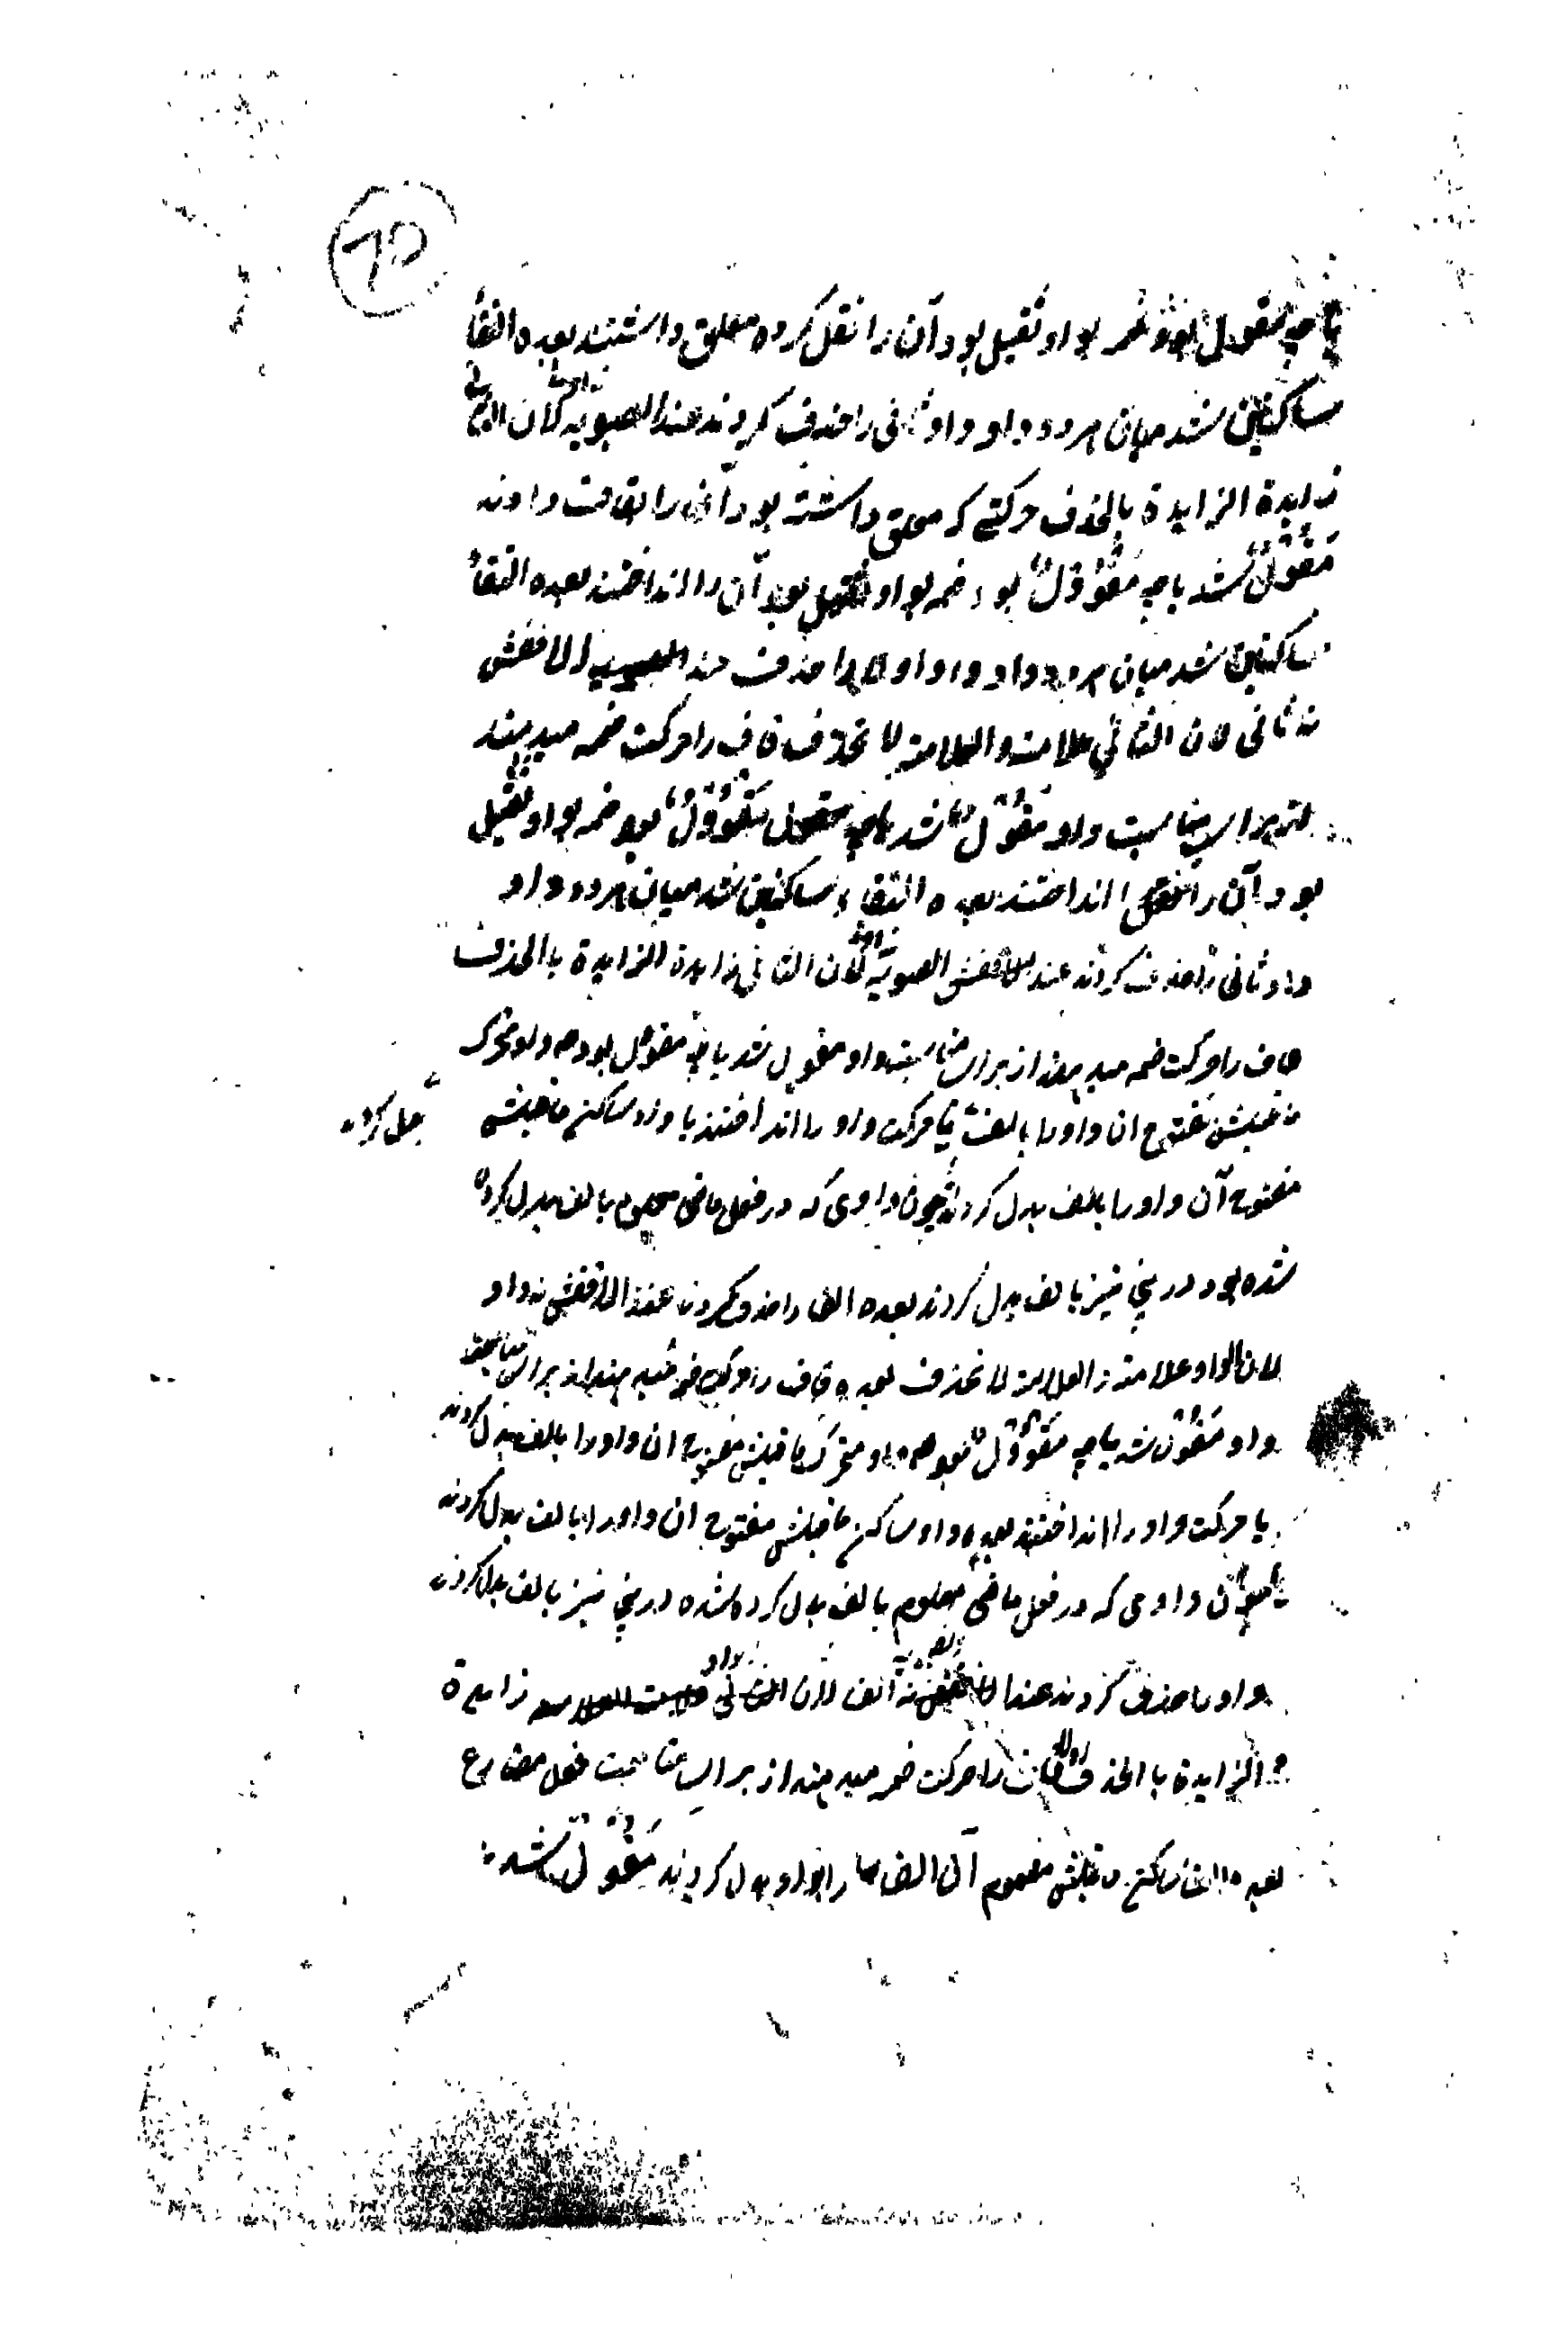 70
یا چه مقوول بود ضمه بواو ثقیل بود آن را نقل کرده معلق داشتند بعده التقاء
ساکنین شد میان هردو واو واو ثانی را حذف کردند عند السیبویه نه اولی لان الثانی
زایدة الزایدة بالحذف حرکتے که معلق داشته بود آن را بقاف دادند
مَقُوْلٌ شد یا چه مَقْوُوْلٌ بود ضمه بواو ثقیل بود آن را انداختند بعده التقاء
ساکنین شد میان هردو واو واو اولی را حذف عند الاخفش
نه ثانی لان الثانی علامت والعلامة لا تحذف قاف را حرکت ضمه میدهند
از برای مناسبت واو مَقُوْلٌ شد یا چه مَقْوُوْلٌ بود ضمه بواو ثقیل
بود آن را انداختند بعده التقاء ساکنین شد میان هردو واو
واو ثانی را حذف کردند عند السیبویه نه اولی لان الثانی زایدة الزایدة بالحذف
قاف را حرکت ضمه میدهند از برای مناسبت واو مقول شد یا چه مقوول بود واو متحرک
ماقبلش مفتوح ان واو را بالف با حرکت واو را انداختند یا واو ساکن ماقبلش
بدل کردند
مفتوح آن واو را بالف بدل کردند چون واوی که در فعل ماضی معلوم بالف بدل کرده
شده بود درینجا نیز بالف بدل کردند بعده الف را حذف کردند عند الاخفش نه واو
لان الواو علامة والعلامة لا تحذف بعده قاف را حرکت ضمه میدهند از برای مناسبت
واو مَقُوْل شد یا چه مَقْوُوْلٌ بود واو متحرک ماقبلش مفتوح ان واو را بالف بدل کردند
یا حرکت واو را انداختند بعده واو ساکن ماقبلش مفتوح ان واو را بالف بدل کردند
چون واوی که در فعل ماضی معلوم بالف بدل کرده شده درینجا نیز بالف بدل کردند
واو را حذف کردند عند نه الف لان الواو زایدة
و الزایدة بالحذف اولی قاف را حرکت ضمه میدهند از برای مناسبت فعل مضارع
بعده الف ساکن ماقبلش مضموم آن الف را بواو بدل کردند مَقُوْلٌ شد